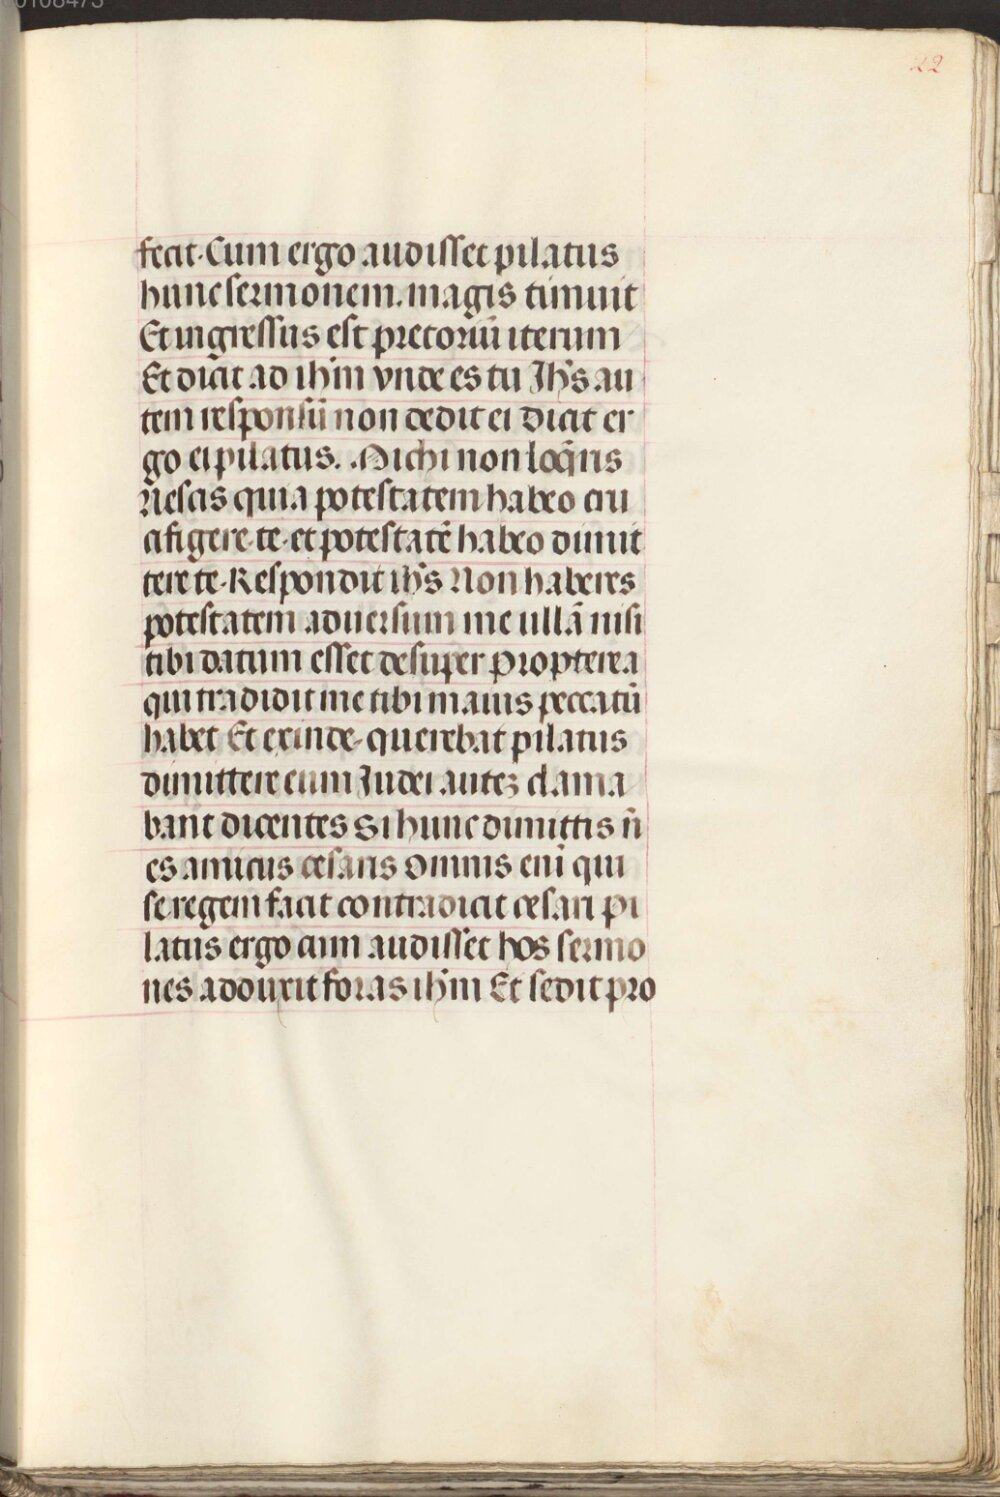 00108473
22
fecit. Cum ergo audisset pilatus
hunc sermonem. magis timuit
Et ingressus est pretoriū iterum
Et dicit ad ihm̄ vnde es tu Ihs̄ au
tem responsū non dedit ei dicit er
go ei pilatus. Michi non loq̄ris
Nescis quia potestatem habeo cru
cifigere te. et potestatē habeo dimit
tere te. Respondit ihs̄ Non haberes
potestatem aduersum me ullā nisi
tibi datum esset desuper Propterea
qui tradidit me tibi maius peccatū
habet Et exinde querebat pilatus
dimittere eum Iudei auteʒ clama
bant dicentes Si hunc dimittis n̄
es amicus cesaris Omnis eni̅ qui
se regem facit contradicit cesari Pi
latus ergo cum audisset hos sermo
nes adduxit foras ihm̄ Et sedit pro